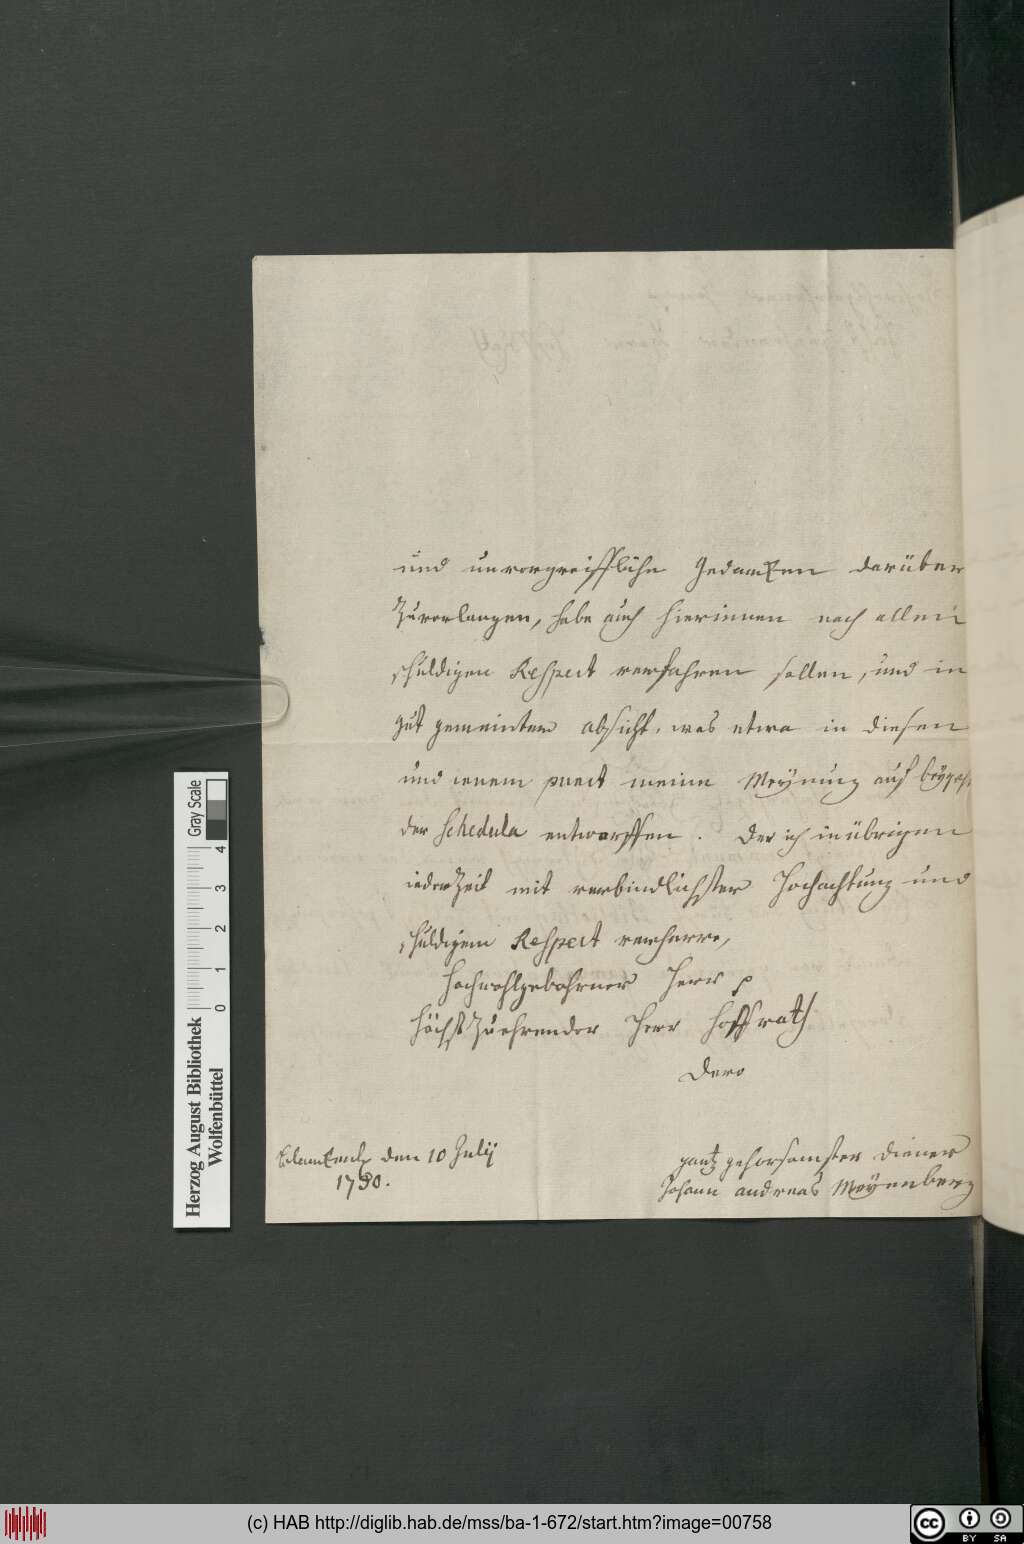 und unvorgreiffliche Gedancken darüber
zuverlangen, habe auch hierinnen nach allen
schuldigen Respect verfahren sollen, und in
gut gemeinter absicht, was etwa in diesen
und ienem punct meine Meynung auf beyge
der Schedula entworffen. Der ich in übrigen
iederZeit mit verbindlichster Hochachtung und
schuldigem Respect verharre,
Hochwohlgebohrner Herr
HöchstZuehrender Herr Hoffrath
Dero
Blanckenb. den 10 Julij
1730.
gantz gehorsamster Diener
Johann andreas Meyenberg
Herzog August Bibliothek
Wolfenbüttel
0 1 2 3 4
Gray Scale
(c) HAB http://diglib.hab.de/mss/ba-1-672/start.htm?image=00758
cc BY SA